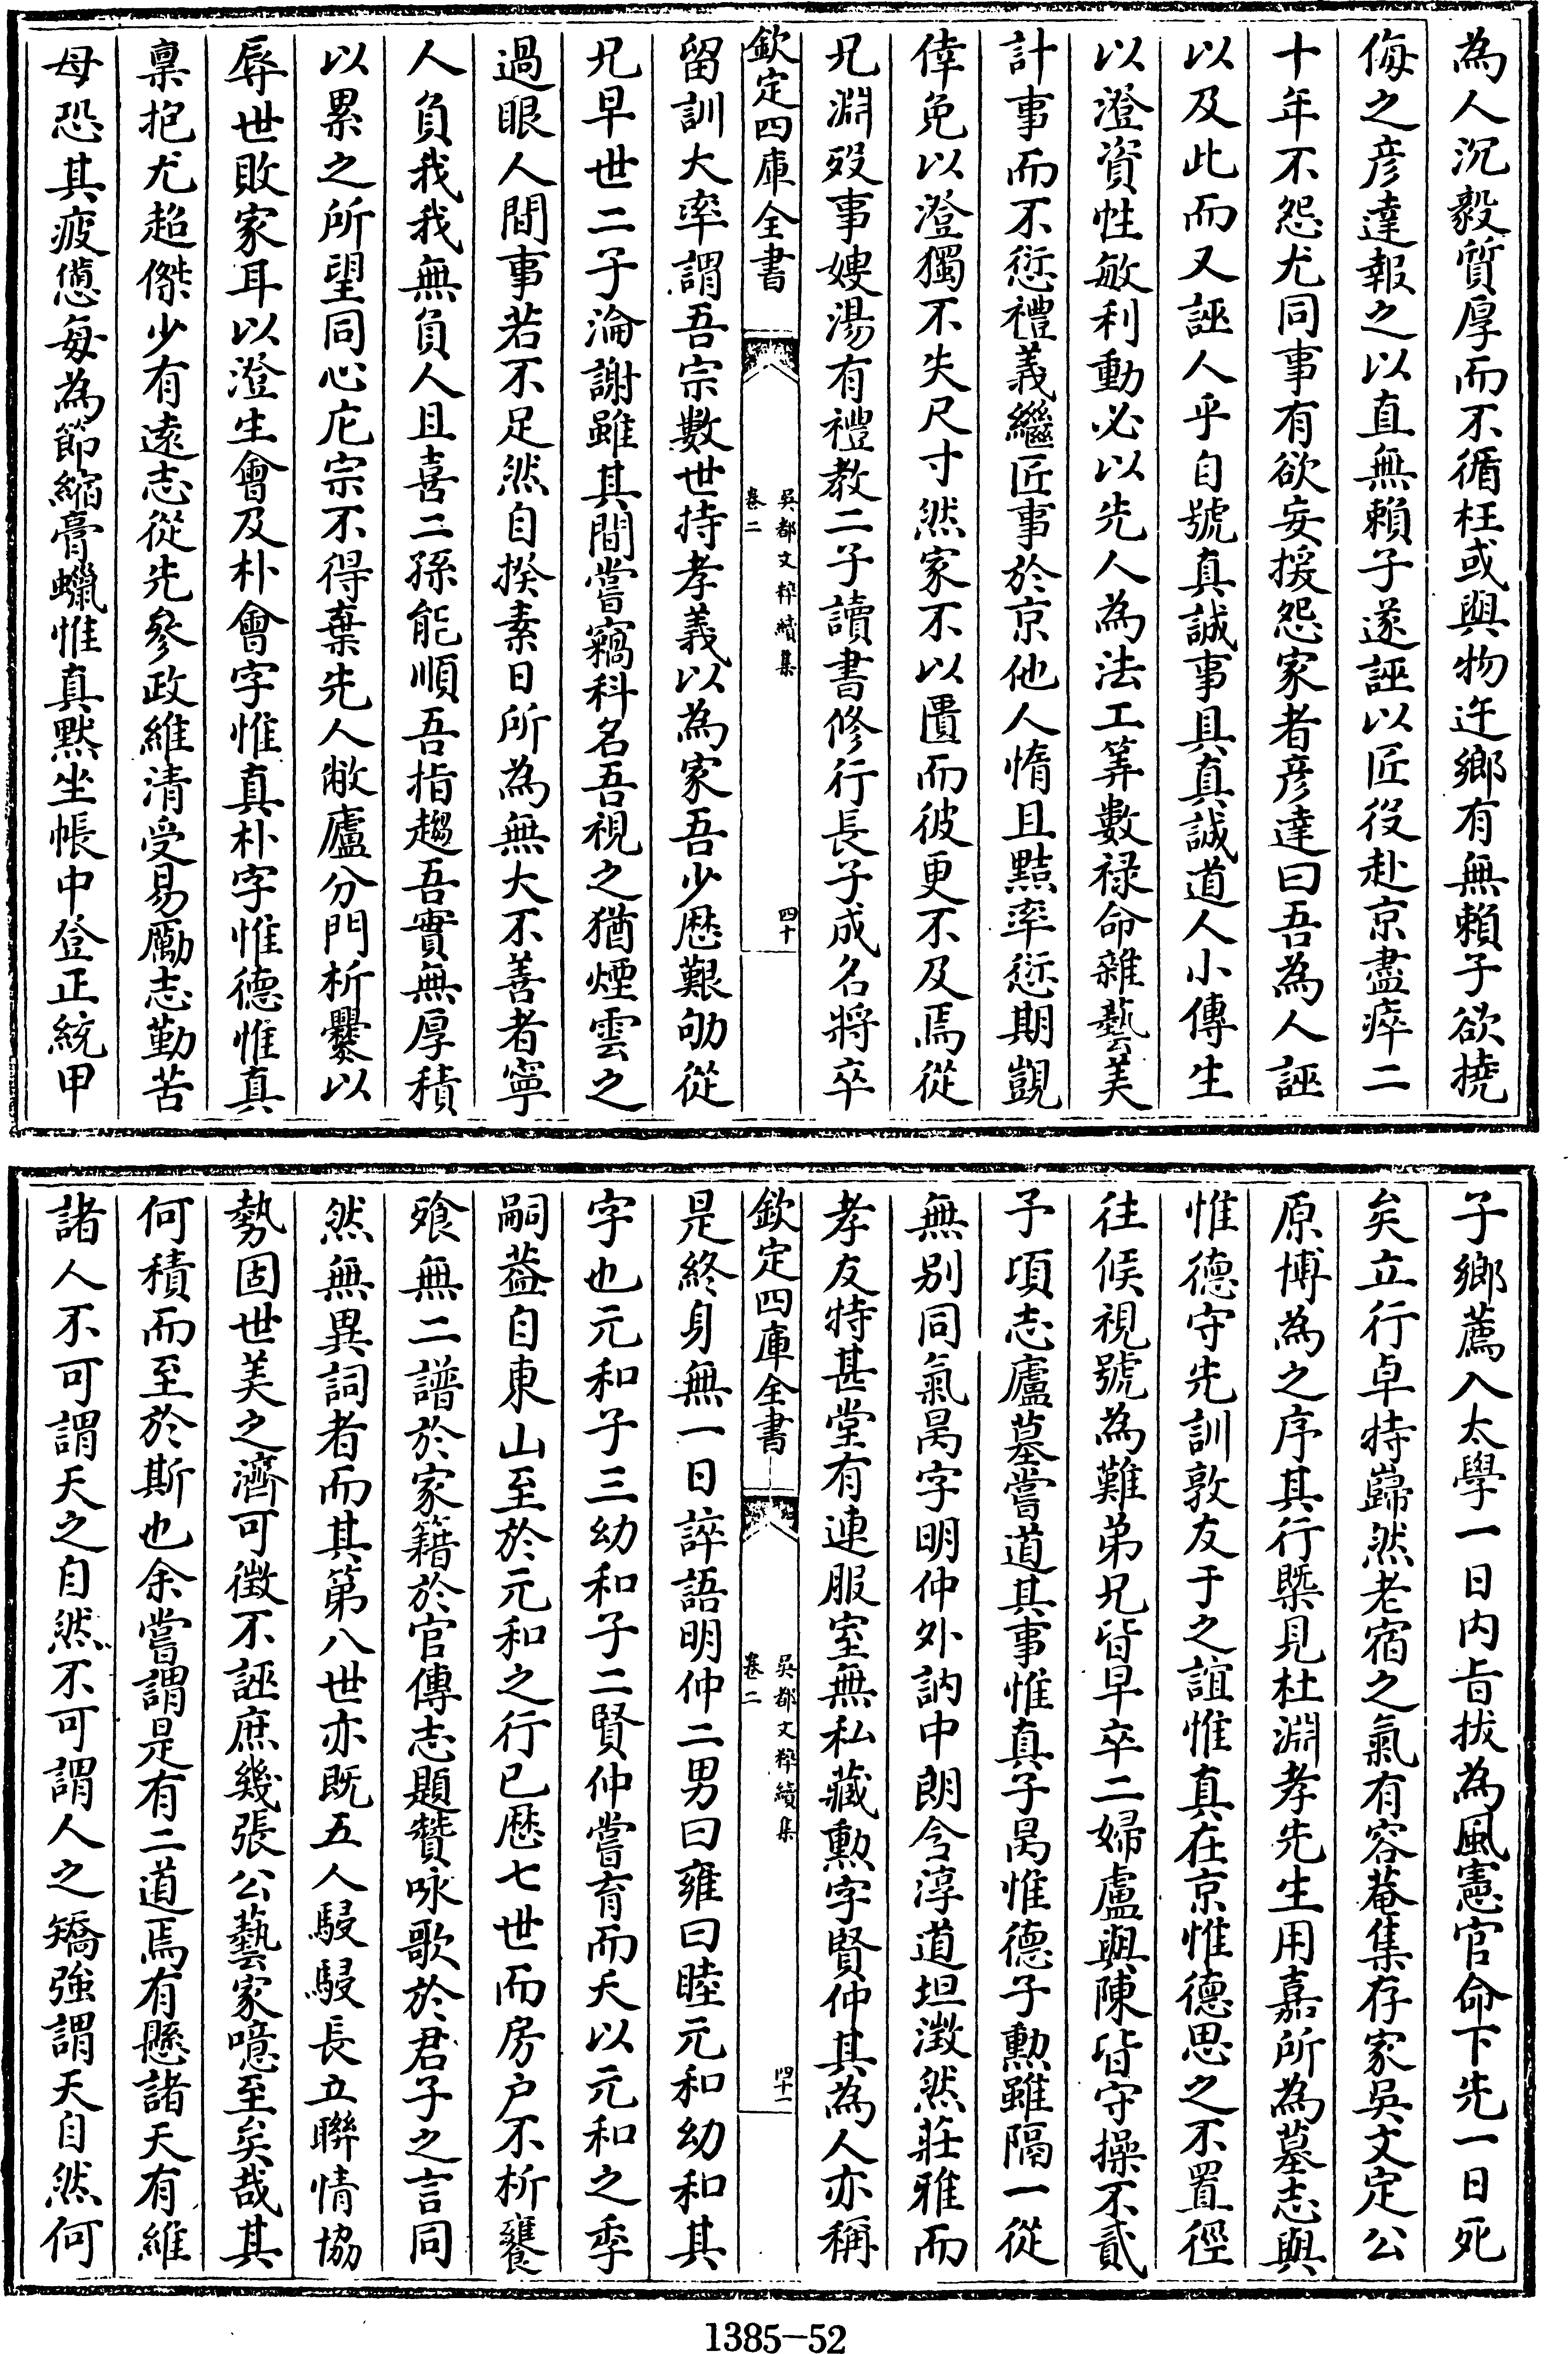 為人沉毅質厚而不循枉或與物迕鄉有無賴子欲撓
侮之彦達報之以直無賴子遂誣以匠役赴京盡瘁二
十年不怨尤同事有欲妄援怨家者彦達曰吾為人誣
以及此而又誣人乎自號真誠事具真誠道人小傳生
以澄資性敏利動必以先人為法工筭數禄命雜藝美
計事而不愆禮義繼匠事於京他人惰且黠率愆期覬
倖免以澄獨不失尺寸然家不以匱而彼更不及焉從
兄淵歿事嫂湯有禮教二子讀書修行長子成名將卒
欽定四庫全書
吳都文粹續集
卷二
四十
留訓大率謂吾宗數世持孝義以為家吾少歴艱劬從
兄早世二子淪謝雖其間嘗竊科名吾視之猶煙雲之
過眼人間事若不足然自揆素日所為無大不善者寧
人負我我無負人且喜二孫能順吾指趨吾實無厚積
以累之所望同心庀宗不得棄先人敝廬分門析爨以
辱世敗家耳以澄生會及朴會字惟真朴字惟德惟真
稟抱尤超傑少有遠志從先參政維清受易勵志勤苦
母恐其疲憊每為節縮膏蠟惟真默坐帳中登正統甲
子鄉薦入太學一日内㫖拔為風憲官命下先一日死
矣立行卓特巋然老宿之氣有容菴集存家吳文定公
原博為之序其行槩見杜淵孝先生用嘉所為墓志與
惟德守先訓敦友于之誼惟真在京惟德思之不置徑
往候視號為難弟兄皆早卒二婦盧與陳皆守操不貳
予項志盧墓嘗道其事惟真子昺惟德子勲雖隔一從
無别同氣昺字明仲外訥中朗含淳道坦澂然莊雅而
孝友特甚堂有連服室無私藏勲字賢仲其為人亦稱
欽定四庫全書
吳都文粹續集
卷二
四十一
是終身無一日誶語明仲二男曰雍曰睦元和幼和其
字也元和子三幼和子二賢仲嘗育而夭以元和之季
嗣葢自東山至於元和之行已歴七世而房户不析饔
飱無二譜於家籍於官傳志題贊咏歌於君子之言同
然無異詞者而其第八世亦既五人駸駸長立聯情協
勢固世美之濟可徴不誣庶幾張公藝家噫至矣哉其
何積而至於斯也余嘗謂是有二道焉有懸諸天有維
諸人不可謂天之自然不可謂人之矯強謂天自然何
1385-52